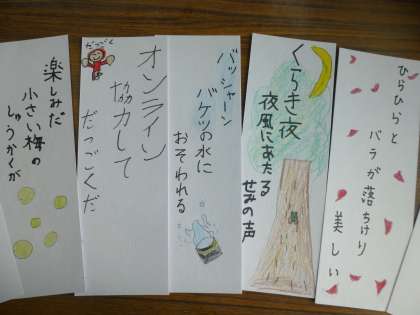 ひらひらと
バラが落ちけり
美しい
くらき夜
夜風にあたる
せみの声
バッシャーン
バケツの水に
おそわれる
だっごく
オンライン
協力して
だっごくだ
楽しみだ
小さい梅の
しゅうかくが